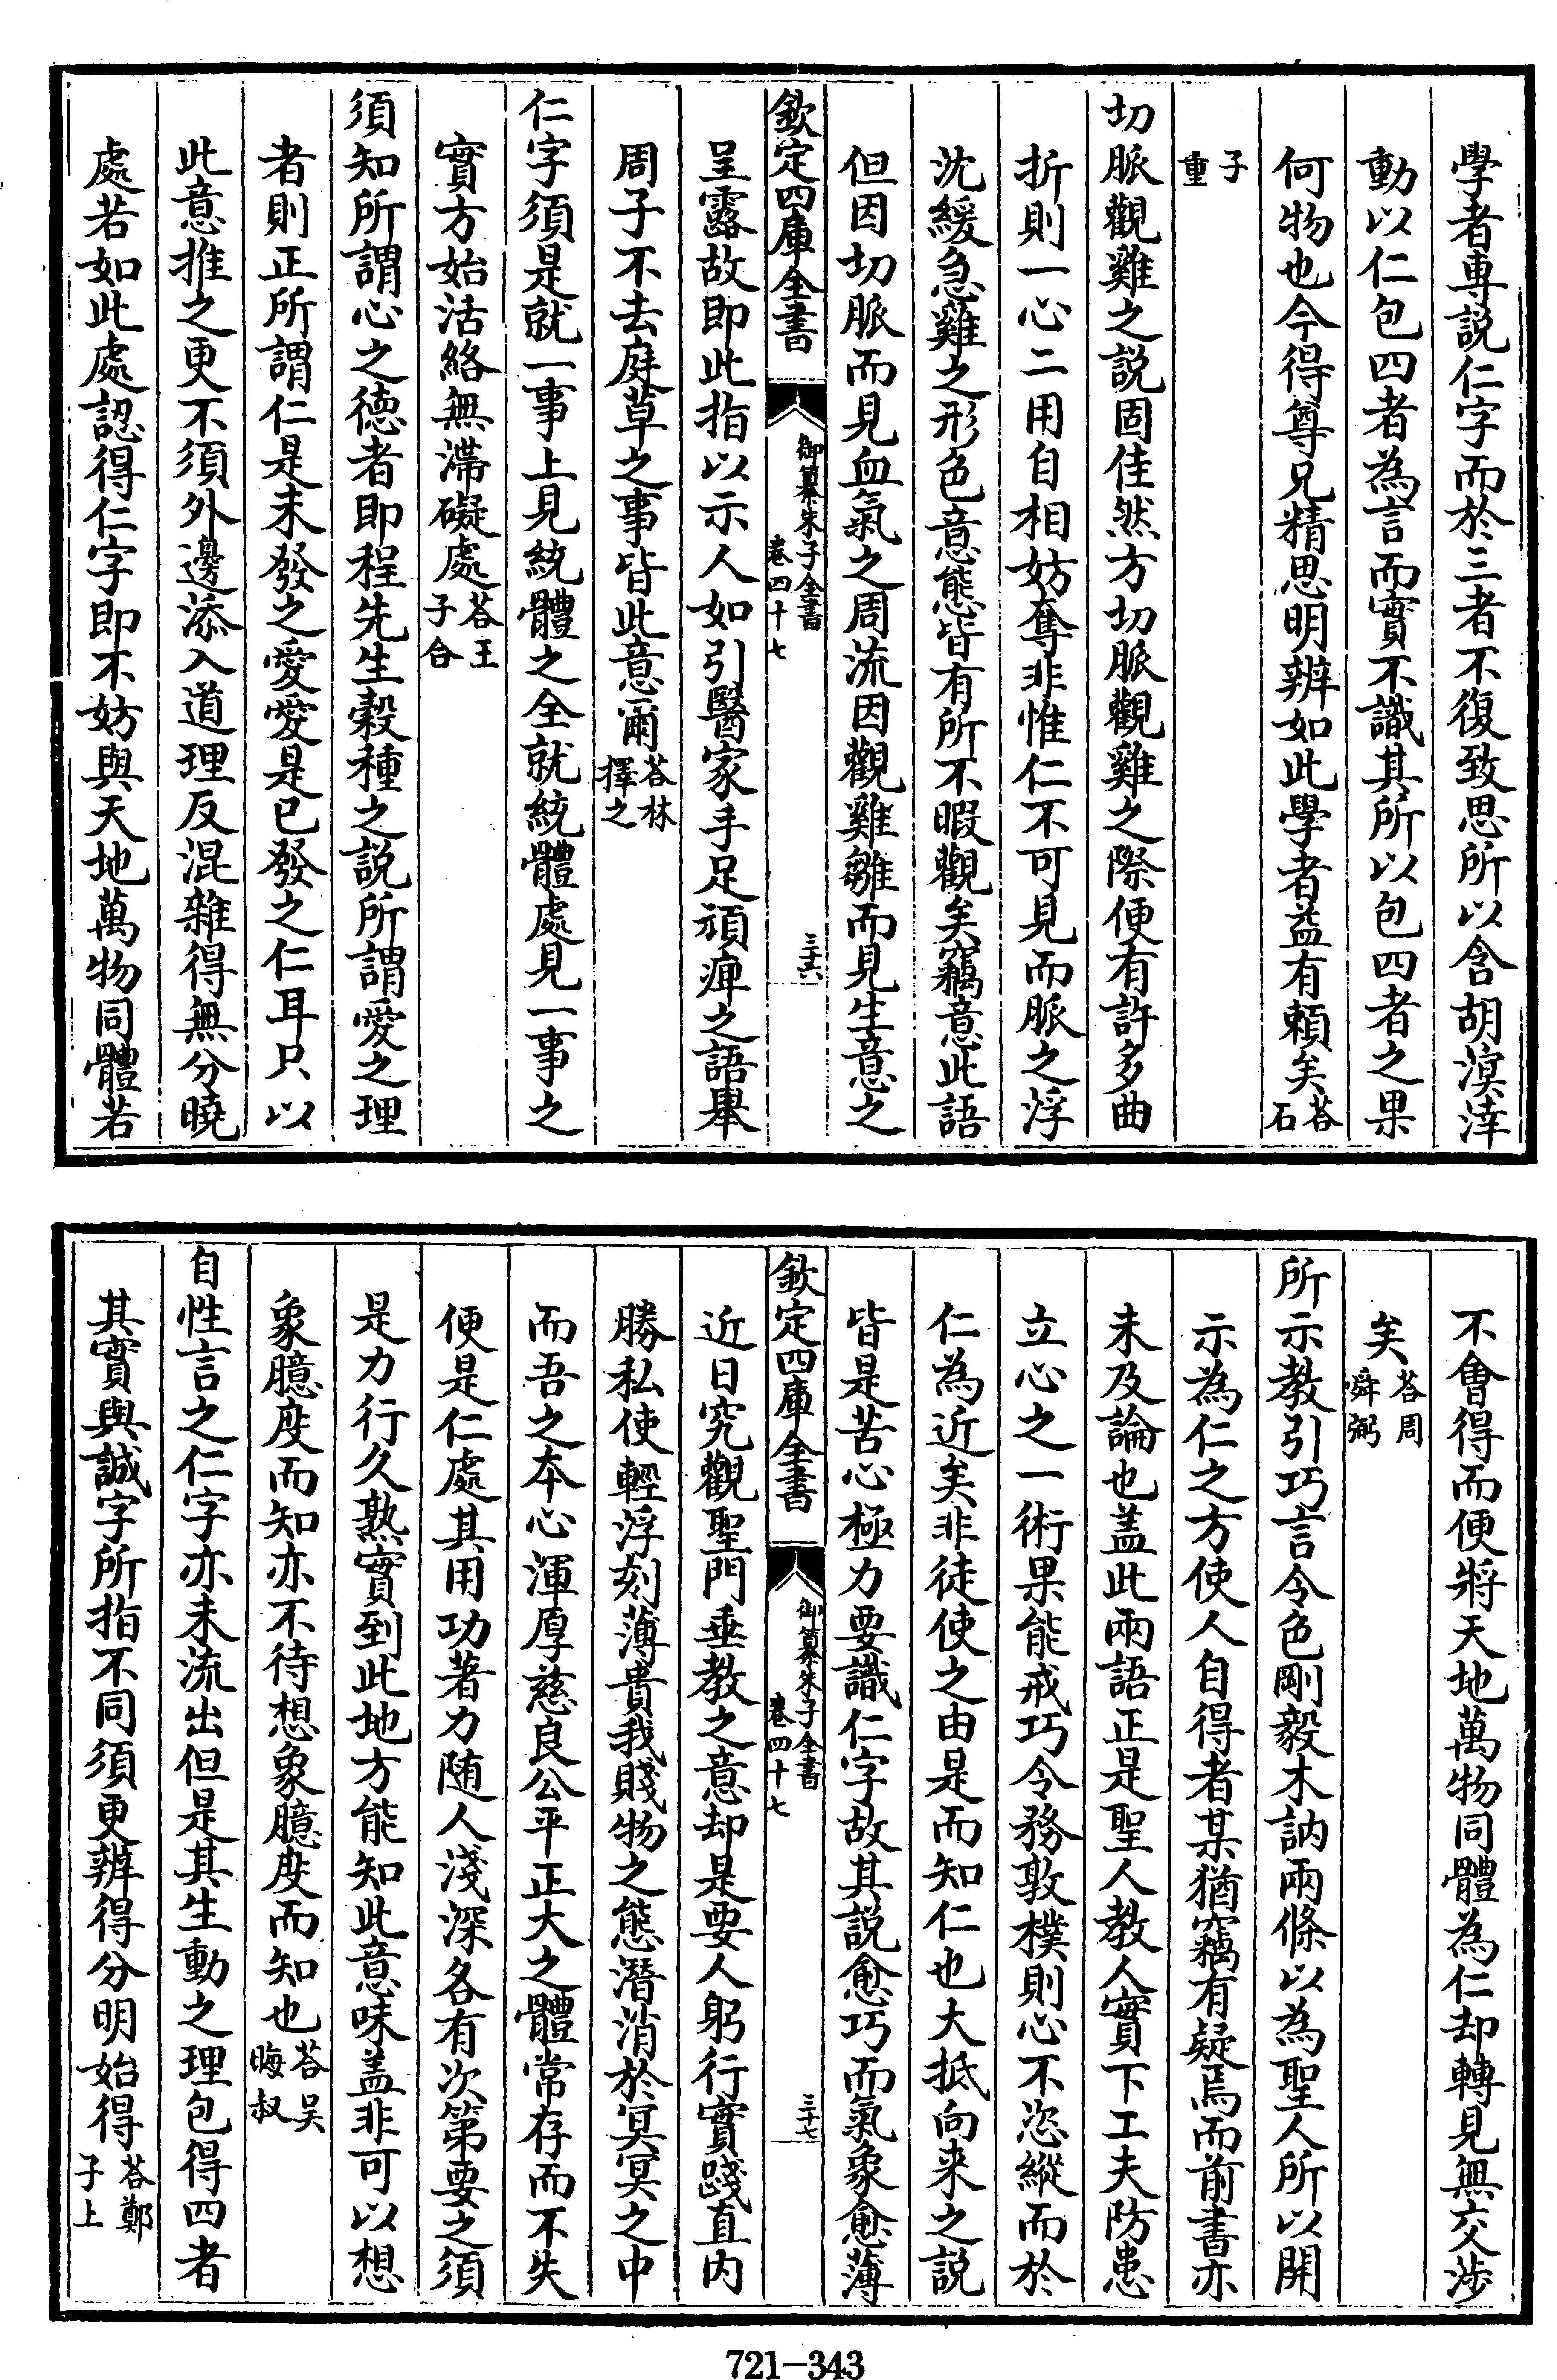 學者專説仁字而於三者不復致思所以含胡溟涬
動以仁包四者為言而實不識其所以包四者之果
何物也今得尊兄精思明辨如此學者益有賴矣荅石
子重
切脈觀雞之説固佳然方切脈觀雞之際便有許多曲
折則一心二用自相妨奪非惟仁不可見而脈之浮
沈緩急雞之形色意態皆有所不暇觀矣竊意此語
但因切脈而見血氣之周流因觀雞雛而見生意之
欽定四庫全書 御纂朱子全書 卷四十七 三十六
呈露故即此指以示人如引醫家手足頑痺之語舉
周子不去庭草之事皆此意爾荅林擇之
仁字須是就一事上見統體之全就統體處見一事之
實方始活絡無滯礙處荅王子合
須知所謂心之徳者即程先生穀種之説所謂愛之理
者則正所謂仁是未發之愛愛是已發之仁耳只以
此意推之更不須外邊添入道理反混雜得無分曉
處若如此處認得仁字即不妨與天地萬物同體若
不會得而便將天地萬物同體為仁却轉見無交渉
矣荅周舜弼
所示教引巧言令色剛毅木訥兩條以為聖人所以開
示為仁之方使人自得者某猶竊有疑焉而前書亦
未及論也盖此兩語正是聖人教人實下工夫防患
立心之一術果能戒巧令務敦樸則心不恣縱而於
仁為近矣非徒使之由是而知仁也大抵向来之説
皆是苦心極力要識仁字故其説愈巧而氣象愈薄
欽定四庫全書 御纂朱子全書 卷四十七 三十七
近日究觀聖門垂教之意却是要人躬行實踐直内
勝私使輕浮刻薄貴我賤物之態潛消於冥冥之中
而吾之本心渾厚慈良公平正大之體常存而不失
便是仁處其用功著力随人淺深各有次第要之須
是力行久熟實到此地方能知此意味盖非可以想
象臆度而知亦不待想象臆度而知也荅吴晦叔
自性言之仁字亦未流出但是其生動之理包得四者
其實與誠字所指不同須更辨得分明始得荅鄭子上
721-343